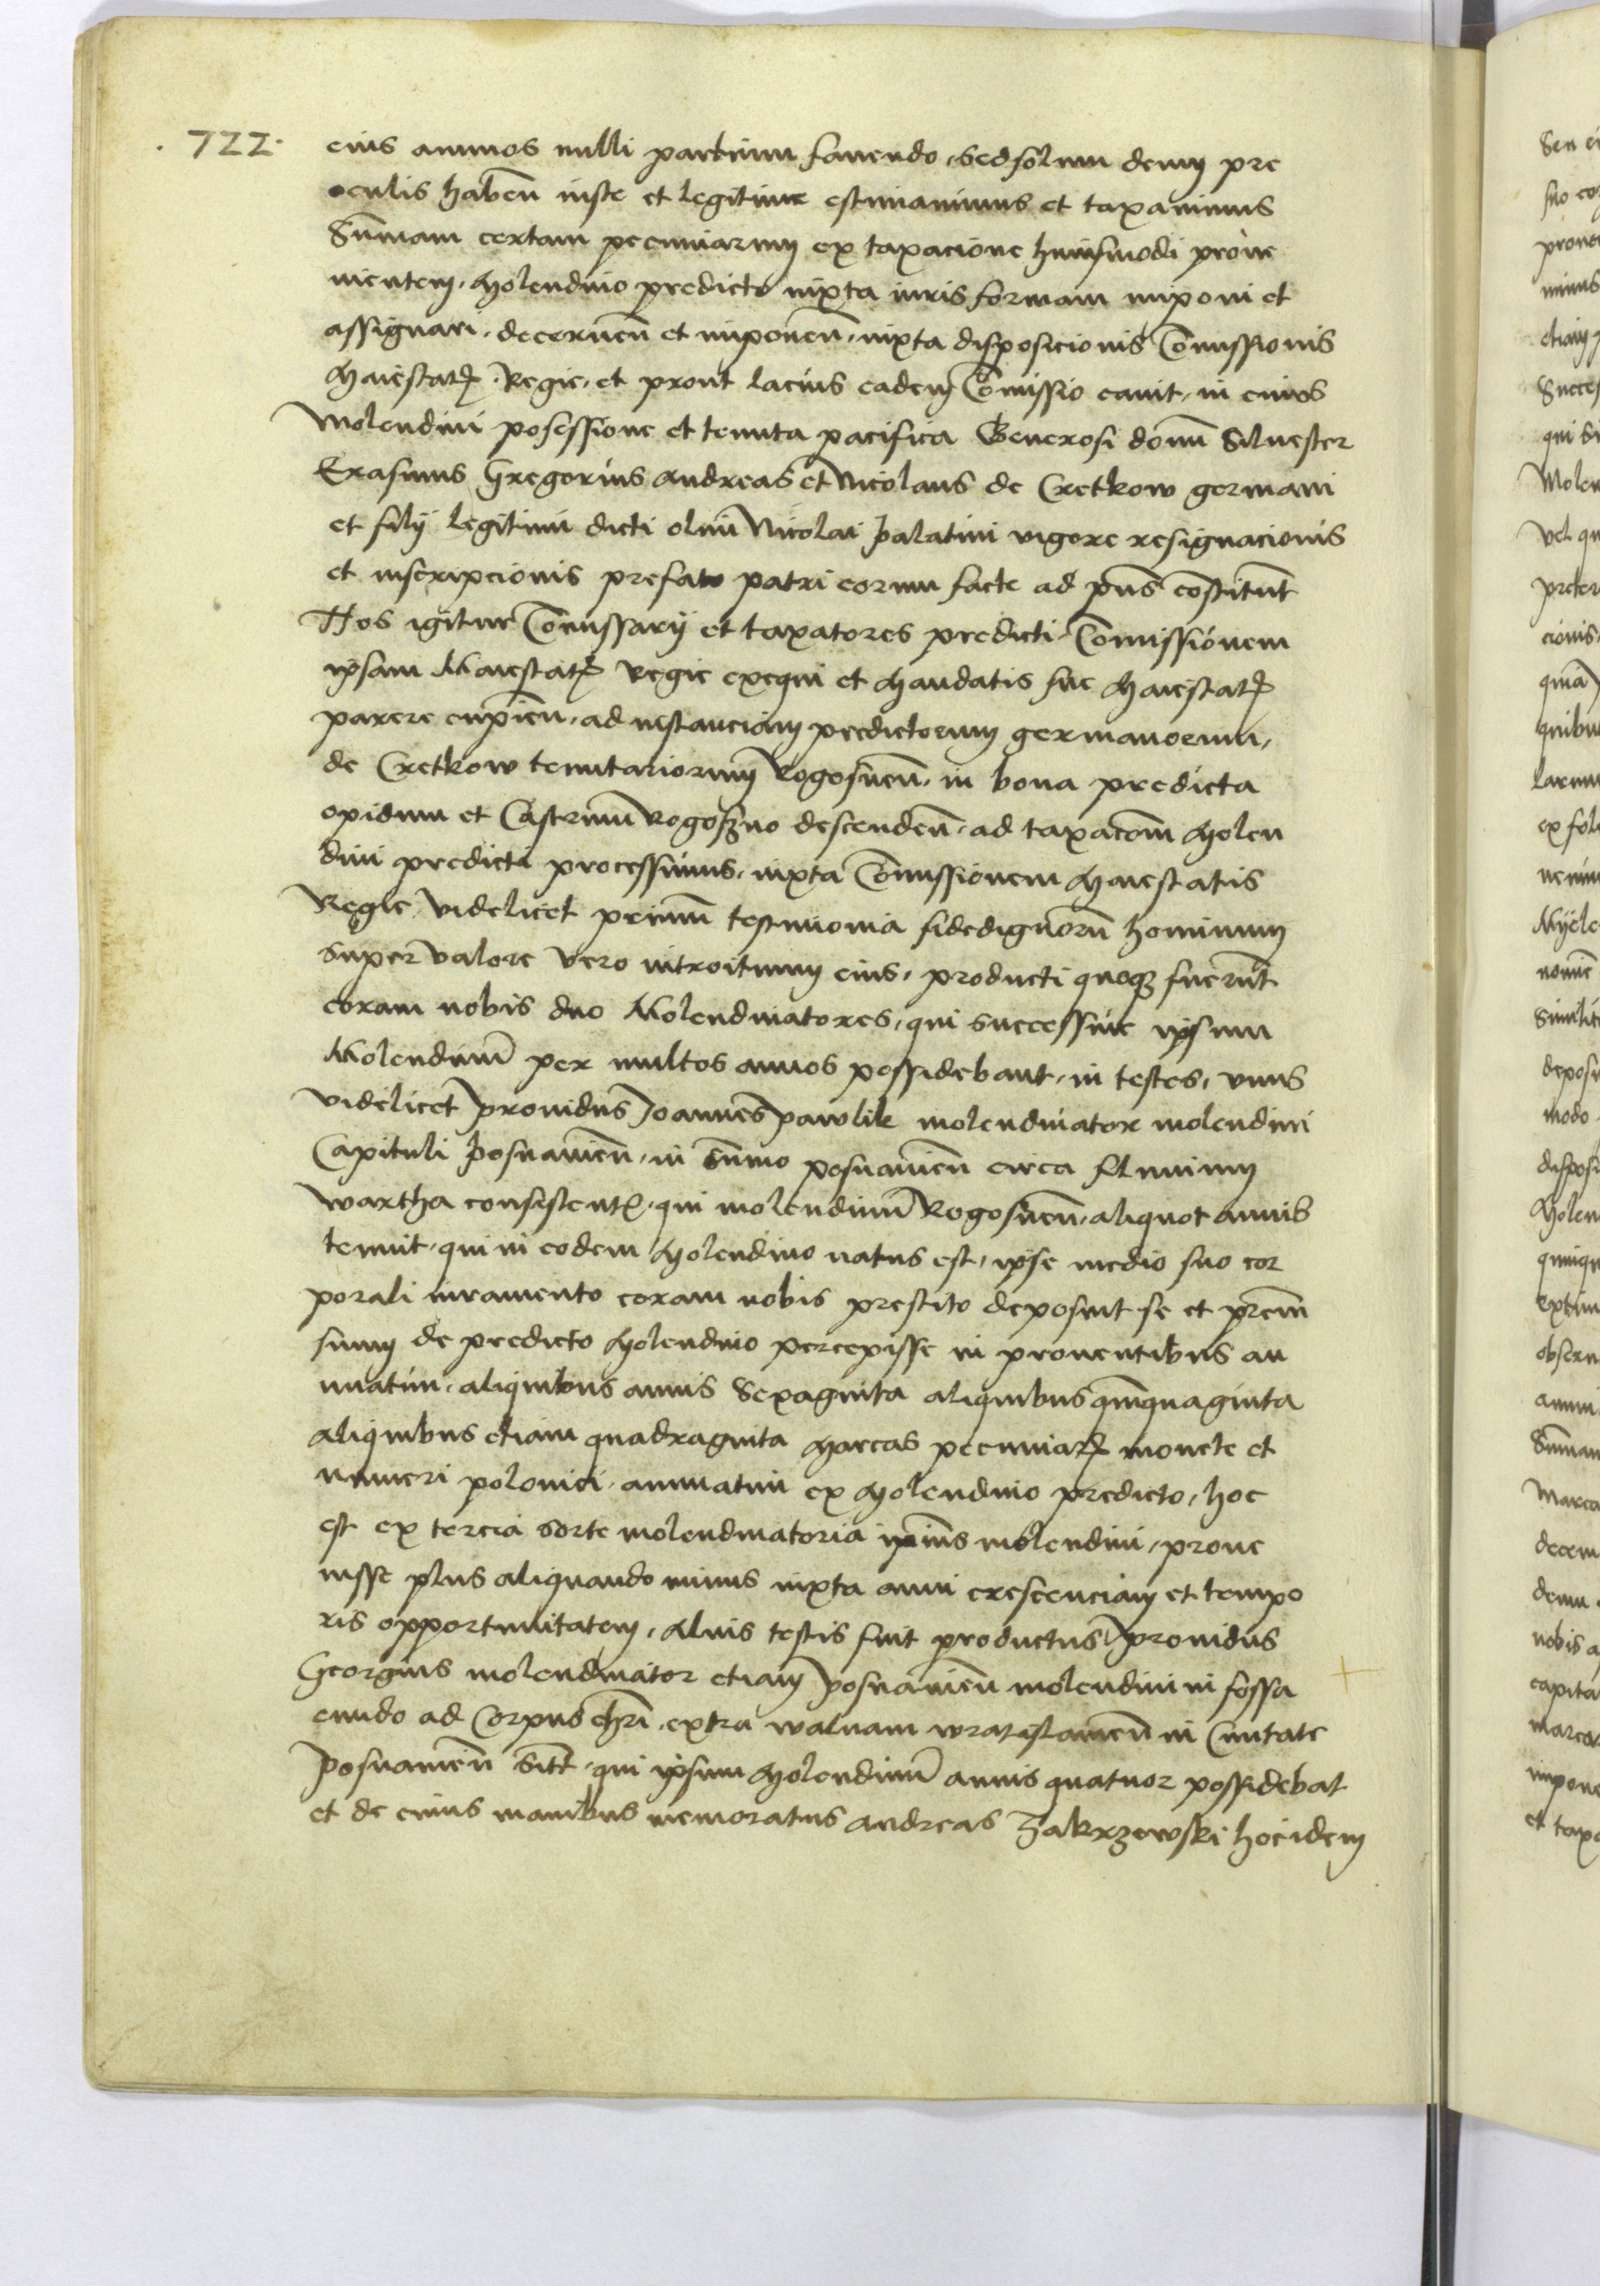 . 722 .
eius annuos nulli partium fauendo, sed solum deum pre
oculis haben̄ iuste et legitime estimauimus et taxauimus
Sum̄am certam pecuniarum ex taxacione huiusmodi proue
nientem, Molendino predicto iuxta iuris formam imponi et
assignari, decernen̄ et imponen̄, iuxta disposicionis Com̄issionis
Maiestatꝭ Regie, et prout lacius eadem Com̄issio canit, in cuius
Molendini posessione et tenuta pacifica Generosi domī Siluester
Erasmus Gregorius Andreas et Nicolaus de Cretkow germani
et filij legitimi dicti olim Nicolai palatini vigore resignacionis
et inscripcionis prefato patri eorum facte ad pn̄s constitunt̄
Nos igitur Com̄issarij et taxatores predicti Com̄issionem
ipsam Maiestatꝭ Regie exequi et Mandatis sue Maiestatꝭ
parere cupien̄, ad instanciam predictorum germanorum,
de Cretkow tenutariorum Rogosnen̄, in bona predicta
opidum et Castrum Rogoszno descenden̄, ad taxacōm Molen
dini predicti processimus, iuxta Com̄issionem Maiestatis
Regie, videlicet primū testimonia fidedignorū hominum
super valore vero introituum eius, producti quoqꝫ fuerūt
coram nobis duo Molendinatores, qui successiue ipsum
Molendinū per multos annos possidebant, in testes, vnus
videlicet prouidus Joannes pawlik molendinator molendini
Capituli posnanien̄, in Sum̄o posnanien̄ circa fluuium
Wartha consistentꝭ, qui molendinū Rogosnen̄, aliquot annis
tenuit, qui in eodem Molendino natus est, ipse medio suo cor
porali iuramento coram nobis prestito deposuit se et prēm
suum de predicto Molendino percepisse in prouentibus an
nuatim, aliquibus annis Sexaginta aliquibus quīnquaginta
aliquibus etiam quadraginta Marcas pecuniarꝭ monete et
numeri polonici, annuatim ex Molendino predicto, hoc
est ex tercia sorte molendinatoria ipīus molendini, proue
nisse plus aliquando minus iuxta anni crescenciam et tempo
ris opportunitatem, Alius testis fuit productus, prouidus
Georgius molendinator etiam posnanien̄ molendini in fossa
eundo ad Corpus chrī, extra waluam wratislauien̄ in Ciuitate
posnanien̄ sitt̄, qui ipsum Molendinū annis quatuor possidebat
et de cuius manibus memoratus Andreas Zakrzewski hoc idem